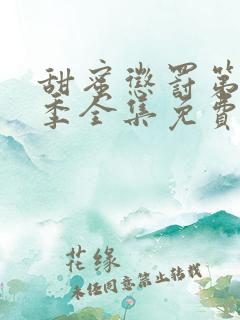 甜蜜懲罰第
季全集免費
花缘
未经同意禁止转载